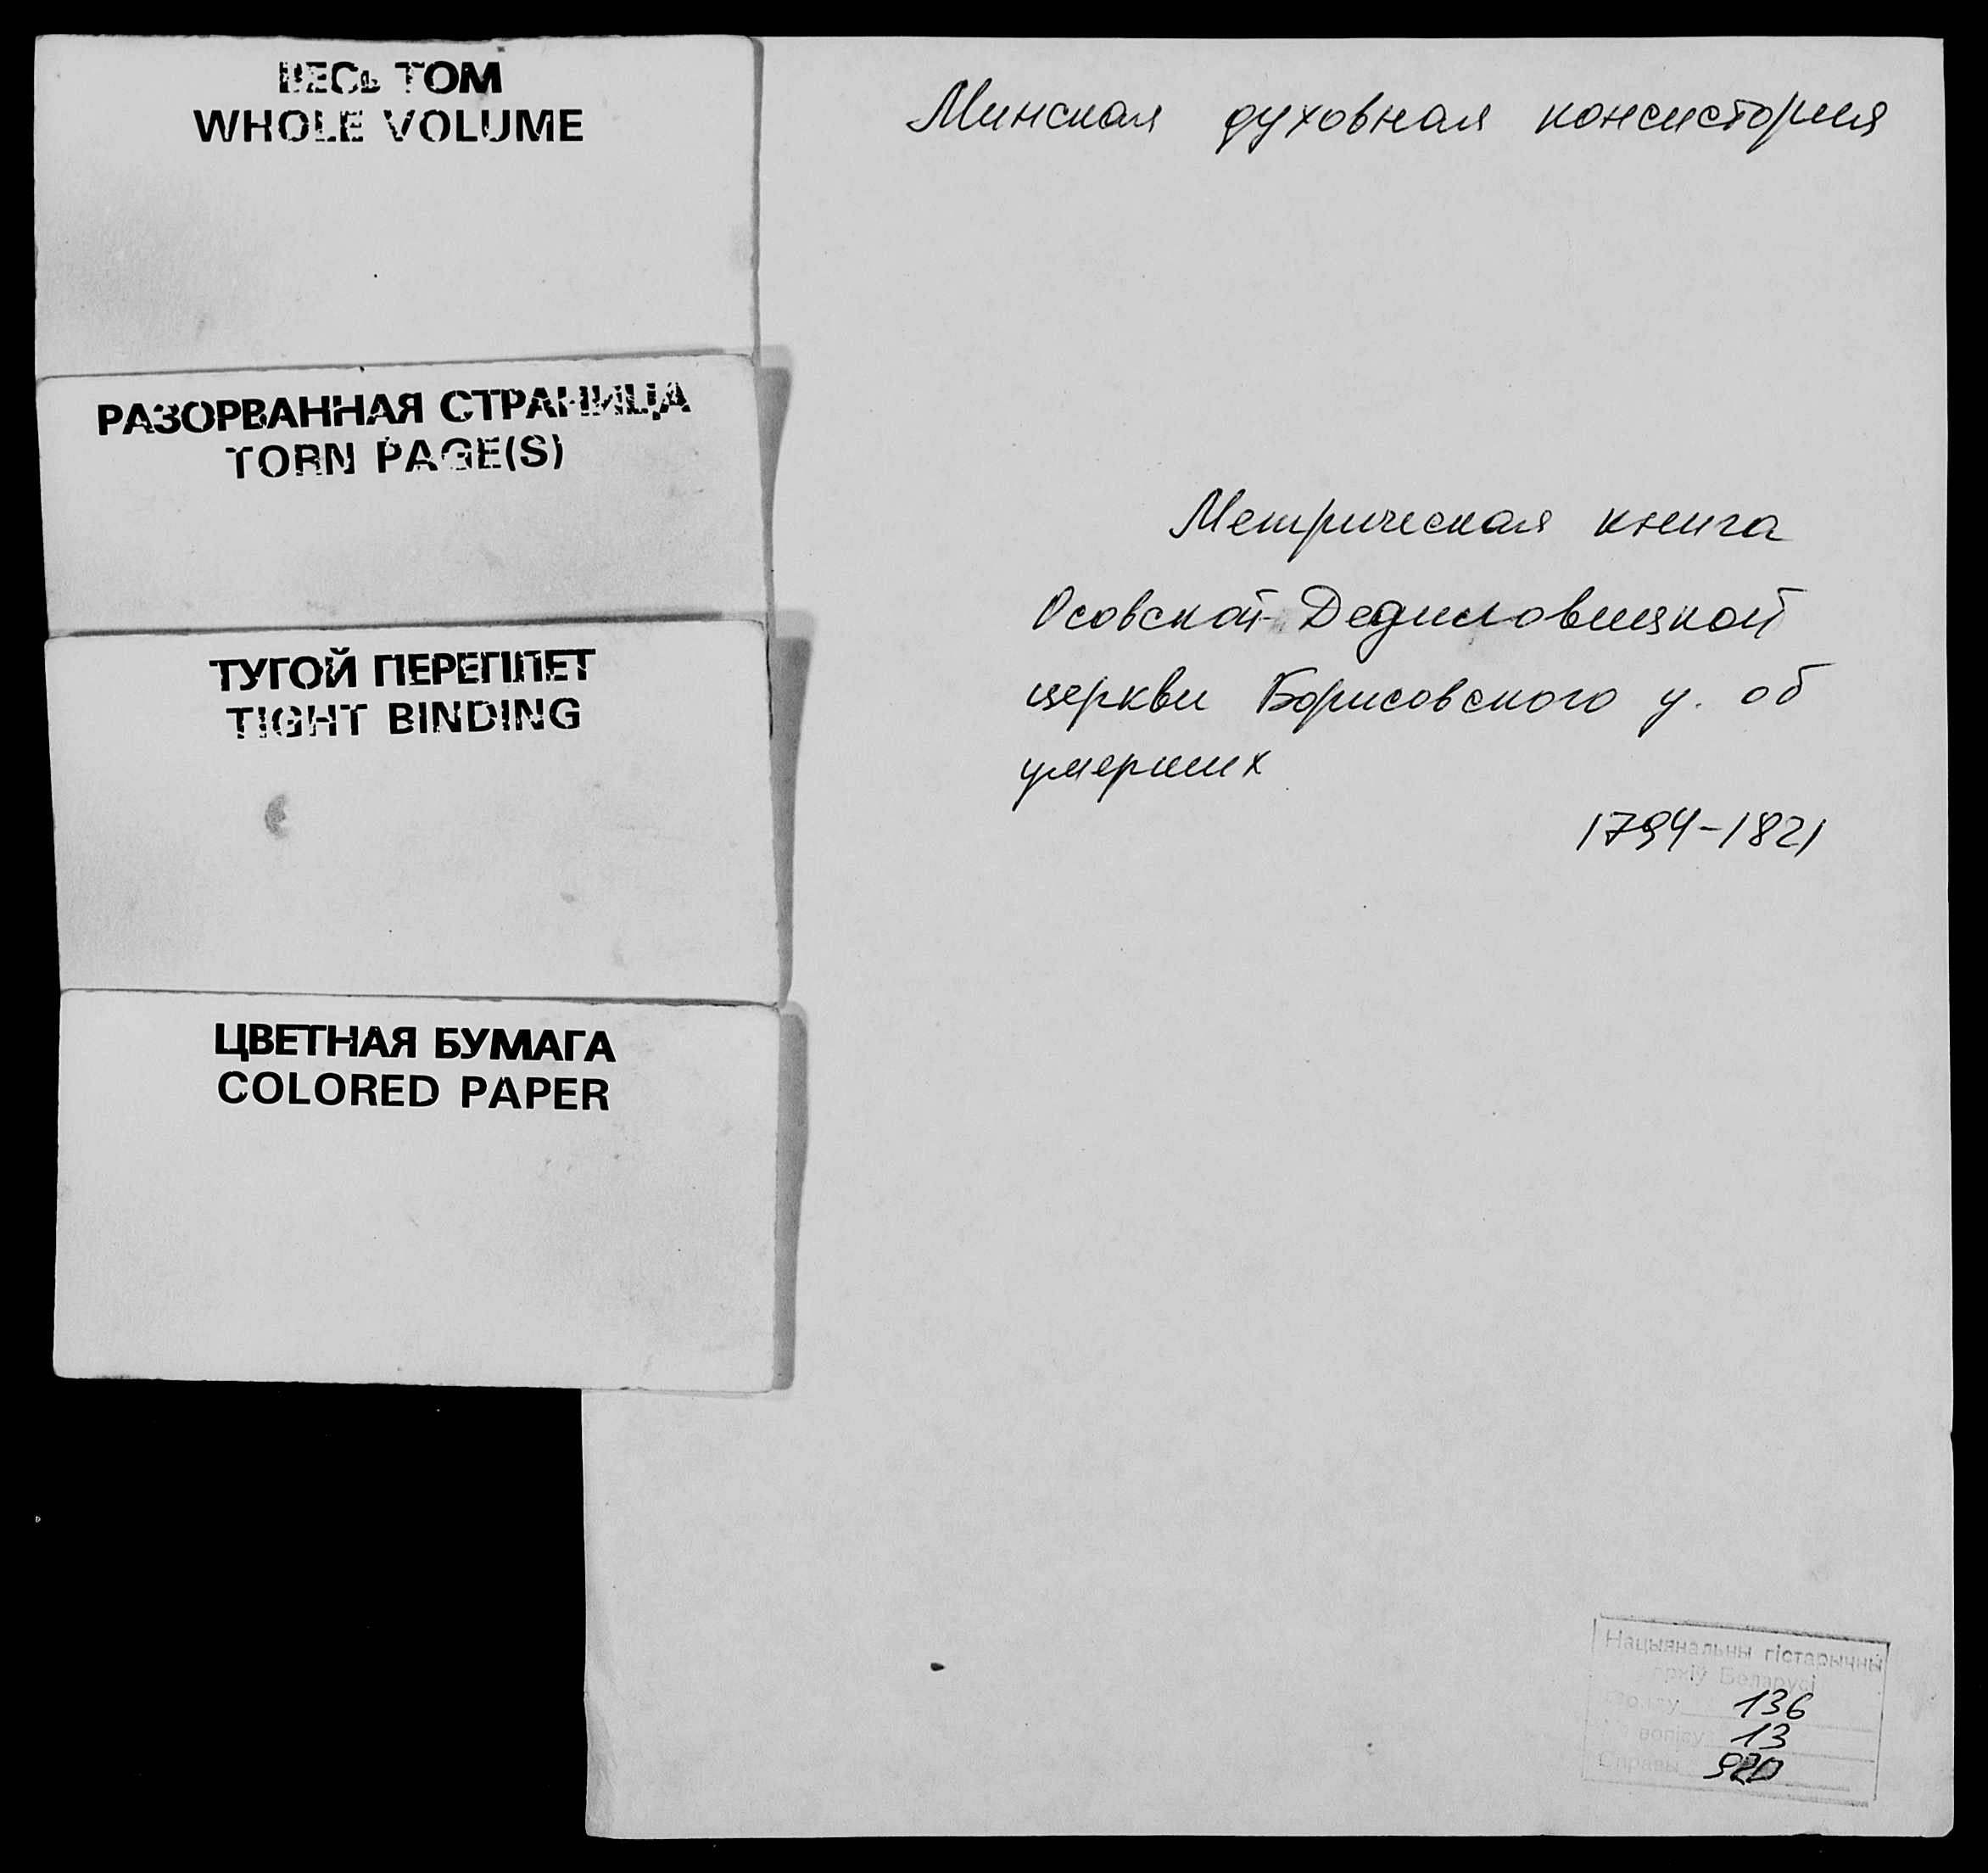 ВЕСЬ ТОМ
WHOLE VOLUME
РАЗОРВАННАЯ СТРАНИЦА
TORN PAGE(S)
ТУГОЙ ПЕРЕПЛЕТ
TIGHT BINDING
ЦВЕТНАЯ БУМАГА
COLORED PAPER
Минская духовная консистория
Метрическая книга
Осовской-Дедиловицкой
церкви Борисовского у. об
умерших
1794-1821
Нацыянальны гістарычны
архіў Беларусі
Фонду 136
№ вопісу 13
Справы